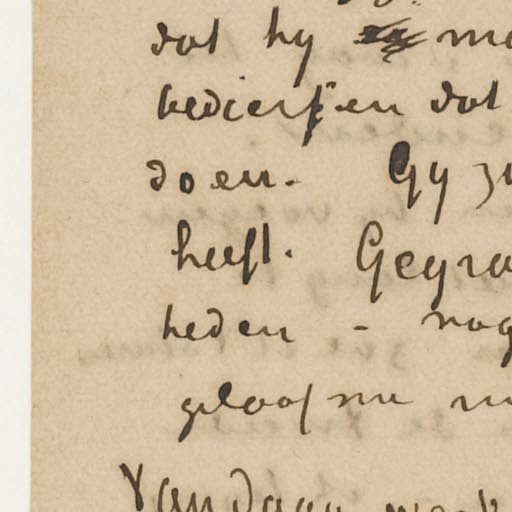 dat hy
bedierf en dat
doen. Gy
heeft.
heden - nog
geloof me
Vandaag